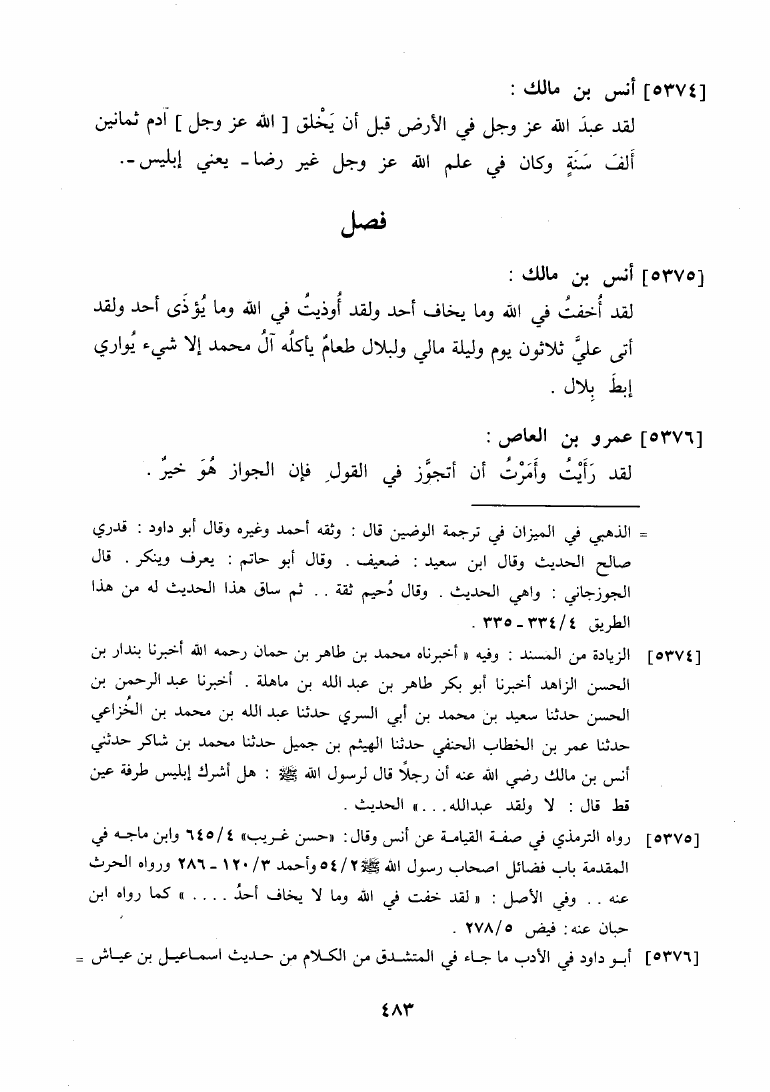 [٥٣٧٤] أنس بن مالك :
لقد عبدَ الله عز وجل في الأرض قبل أن يَخْلق [ الله عز وجل ] آدم ثمانين
أَلفَ سَنَةٍ وكان في علم الله عز وجل غير رضا - يعني إبليس -.
فصل
[٥٣٧٥] أنس بن مالك :
لقد أُخفتُ في الله وما يخاف أحد ولقد أُوذيتُ في الله وما يُؤذَى أحد ولقد
أتى عليَّ ثلاثون يوم وليلة مالي ولبلال طعامٌ يأكلُه آلُ محمد إلا شيء يُواري
إبطَ بِلال .
[٥٣٧٦] عمرو بن العاص :
لقد رَأَيْتُ وأمَرْتُ أن أتجوَّز في القولِ فإن الجواز هُوَ خيرٌ .
= الذهبي في الميزان في ترجمة الوضين قال : وثقه أحمد وغيره وقال أبو داود : قدري
صالح الحديث وقال ابن سعيد : ضعيف . وقال أبو حاتم : يعرف وينكر . قال
الجوزجاني : واهي الحديث . وقال دُحيم ثقة .. ثم ساق هذا الحديث له من هذا
الطريق ٤/ ٣٣٤ - ٣٣٥ .
[٥٣٧٤] الزيادة من المسند : وفيه « أخبرناه محمد بن طاهر بن حمان رحمه الله أخبرنا بندار بن
الحسن الزاهد أخبرنا أبو بكر طاهر بن عبد الله بن ماهلة . أخبرنا عبد الرحمن بن
الحسن حدثنا سعيد بن محمد بن أبي السري حدثنا عبد الله بن محمد بن الخُزاعي
حدثنا عمر بن الخطاب الحنفي حدثنا الهيثم بن جميل حدثنا محمد بن شاكر حدثني
أنس بن مالك رضي الله عنه أن رجلًا قال لرسول الله ﷺ : هل أشرك إبليس طرفة عين
قط قال : لا ولقد عبدالله . . . » الحديث .
[٥٣٧٥] رواه الترمذي في صفة القيامة عن أنس وقال: «حسن غريب» ٤/ ٦٤٥ وابن ماجه في
المقدمة باب فضائل اصحاب رسول الله ﷺ ٢/ ٥٤ وأحمد ٣/ ١٢٠ - ٢٨٦ ورواه الحرث
عنه .. وفي الأصل : « لقد خفت في الله وما لا يخاف أحدُ .... » كما رواه ابن
حبان عنه : فيض ٥/ ٢٧٨ .
[٥٣٧٦] أبو داود في الأدب ما جاء في المتشدق من الكلام من حديث اسماعيل بن عياش =
٤٨٣